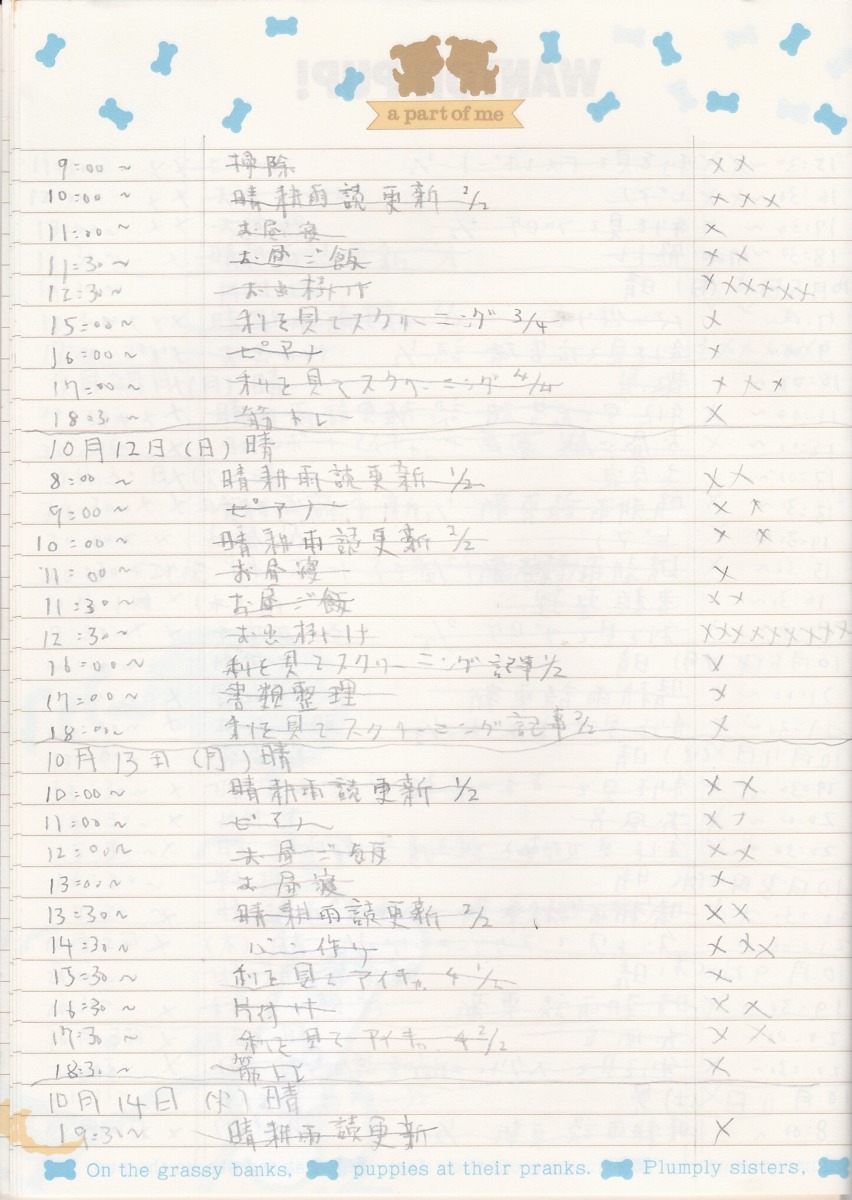 a part of me
9:00~ 掃除 ××
10:00~ 晴耕雨読更新 2/2 ×××
11:00~ お昼寝 ×
11:30~ お昼ご飯 ××
12:30~ お出掛け ××××××
15:00~ 利を見てスクリーニング 3/4 ×
16:00~ ピアノ ×
17:00~ 利を見てスクリーニング 4/4 ×××
18:30~ 筋トレ ×
10月12日(日)晴
8:00~ 晴耕雨読更新 1/2 ××
9:00~ ピアノ ××
10:00~ 晴耕雨読更新 2/2 ××
11:00~ お昼寝 ×
11:30~ お昼ご飯 ××
12:30~ お出掛け ×××××××××
16:00~ 利を見てスクリーニング記事 1/2 ×
17:00~ 書類整理 ×
18:00~ 利を見てスクリーニング記事 2/2 ×
10月13日(月)晴
10:00~ 晴耕雨読更新 1/2 ××
11:00~ ピアノ ××
12:00~ お昼ご飯 ××
13:00~ お昼寝 ×
13:30~ 晴耕雨読更新 2/2 ××
14:30~ パン作り ×××
15:30~ 利を見てアイキャ 4 1/2 ×
16:30~ 片付け ××
17:30~ 利を見てアイキャ 4 2/2 ××
18:30~ 筋トレ ×
10月14日(火)晴
19:30~ 晴耕雨読更新 ×
On the grassy banks, puppies at their pranks. Plumply sisters,